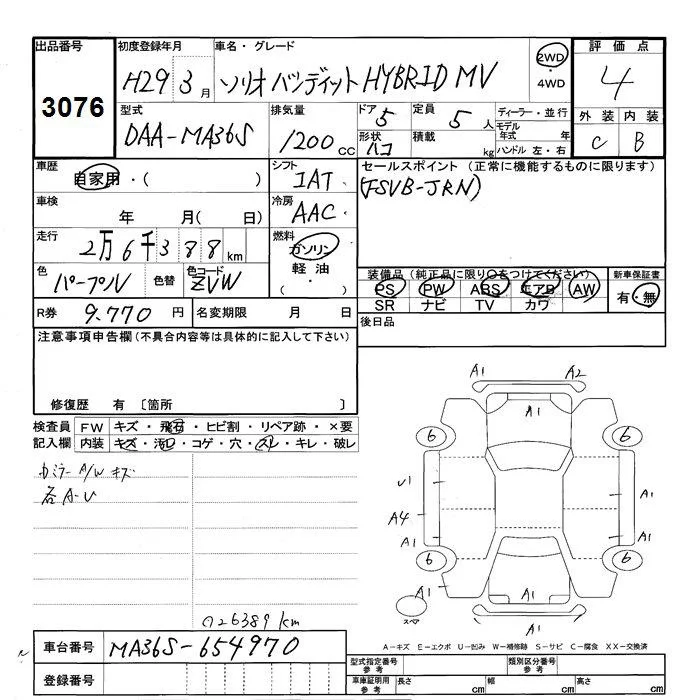 出品番号 初度登録年月 車名・グレード 評価点
3076 H29 3月 ソリオバンディット HYBRID MV 2WD・4WD 4
型式 排気量 ドア 5 定員 5人 ディーラー・並行 外装 内装
DAA-MA36S 1200cc 形状 ハコ 積載 kg モデル年式 年 C B
ハンドル 左・右
車歴 シフト セールスポイント(正常に機能するものに限ります)
自家用・( ) IAT (FSVB-JRN)
車検 年 月(日) 冷房 AAC
走行 2万6千388km 燃料 ガソリン
軽油・( )
色 パープル 色替 色コード ZVW
装備品(純正品に限り○をつけてください) 新車保証書
PS PW ABS エアB AW 有・無
SR ナビ TV カワ
R券 9.770円 名変期限 月 日 後日品
注意事項申告欄(不具合内容等は具体的に記入して下さい)
修復歴 有 〔箇所 〕
検査員 FW キズ・飛石・ヒビ割・リペア跡・×要
記入欄 内装 キズ・汚レ・コゲ・穴・スレ・キレ・破レ
カミラー A/W キズ
各A-U
26389km
A1 A2
A1
6 6
U1 A1
A4
A1 A1
6 6
A1 A1 A1
スペア
A1
A-キズ E-エクボ U-凹み W-補修跡 S-サビ C-腐食 XX-交換済
車台番号 MA36S-654970
型式指定番号 類別区分番号
登録番号 車庫証明用参考 長さ cm 幅 cm 高さ cm